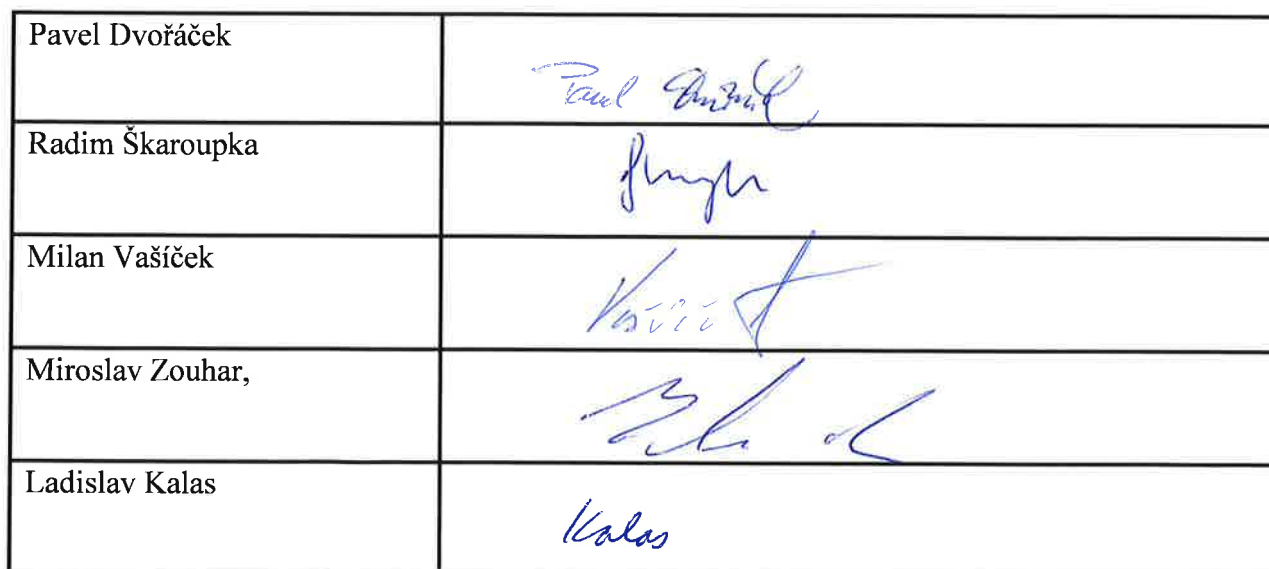 Pavel Dvořáček
Pavel
Radim Škaroupka
Milan Vašíček
Miroslav Zouhar,
Ladislav Kalas
Kalas